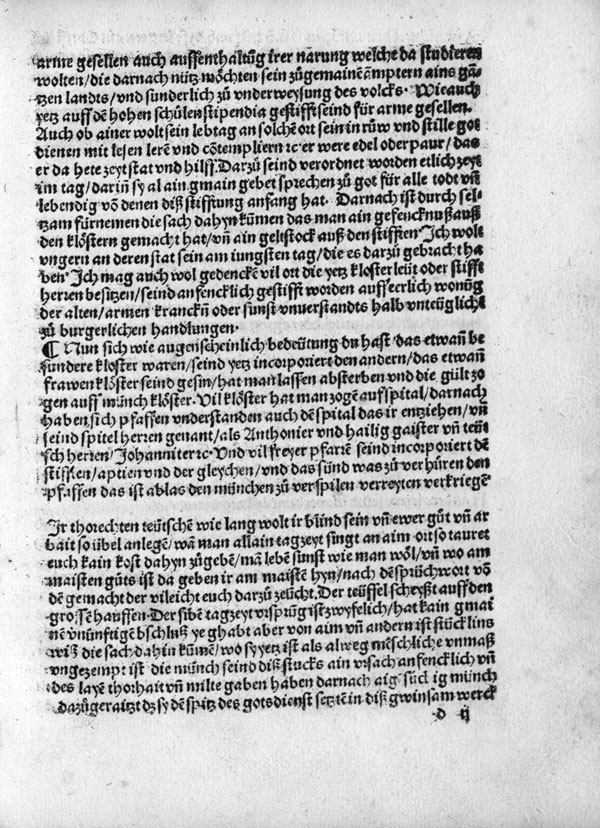 arme gesellen auch auffenthaltũg irer narung welche da studieren
wolten/die darnach nütz möchten sein zů gemainẽ ãmptern ains gã-
tzen landts/vnd sunderlich zů vnderweysung des volcks. Wie auch
yetz auff dẽ hohen schůlen stipendia gestifft seind für arme gesellen.
Auch ob ainer wolt sein lebtag an solchẽ ort sein in růw vnd stille got
dienen mit lesen lerẽ vnd cõtempliern ꝛc er were edel oder paur/das
er da hete zeyt stat vnd hilff. Darzů seind verordnet worden etlich zeyt
im tag/darin̄ sy al ain gmain gebet sprechen zů got für alle todt vn̄
lebendig võ denen diß stifftung anfang hat. Darnach ist durch sel-
tzam fürnemen die sach dahyn kũmen das man ain gefencknuß auß
den klöstern gemacht hat/vn̄ ain geltstock auß den stifften. Ich wolt
vngern an deren stat sein am iungsten tag/die es darzů gebracht ha
ben. Ich mag auch wol gedenckẽ vil ort die yetz klosterleüt oder stifft
herren besitzen/seind anfencklich gestifft worden auffeerlich wonũg
der alten/armen kranckn̄ oder sunst vnuerstandts halb vnteüglicht
zů burgerlichen handlungen.
¶ Nun sich wie augenscheinlich bedeütung du hast das etwan̄ be
sundere kloster waren/seind yetz incorporiert den andern/das etwan̄
frawen klöster seind gesin/hat man lassen absterben vnd die gült zo
gen auff münch klöster. Vil klöster hat man zogẽ auf spital/darnach
haben sich pfaffen vnderstanden auch dẽ spital das ir entziehen/vn̄
seind spitel herren genant/als Anthonier vnd hailig gaister vn̄ teüt
sch herren/Johanniter ꝛc. Vnd vil freyer pfarrẽ seind incorporiert dẽ
stifften/aptien vnd der gleychen/vnd das sünd was zů verhüren den
pfaffen das ist ablas den münchen zů verspilen verreyten verkriegẽ
Ir thorechten teütschẽ wie lang wolt ir blind sein vn̄ ewer gůt vn̄ ar
bait so übel anlegẽ/wã man allain tagzeyt singt an aim ort so tauret
euch kain kost dahyn zůgebẽ/mã lebẽ sunst wie man wöl/vn̄ wo am
maisten gůts ist da geben ir am maistẽ hyn/nach dẽ sprüchwort võ
dẽ gemacht der vileicht euch darzů zeücht. Der teüffel scheyßt auff den
grossẽ hauffen. Der sibẽ tagzeyt vrsprũg ist zwyfelich/hat kain gmai
nẽ vnünftigẽ bschluß ye ghabt aber von aim vn̄ andern ist stücklins
wiß die sach dahin kũmẽ/wo sy yetz ist als alweg mẽschliche vnmaß
vngezempt ist die münch seind diß stucks ain vrsach anfencklich vn̄
des layẽ thorhait vn̄ milte gaben haben darnach münch
dazů geraitzt dz sy dẽ spitz des gotsdienst setztẽ in diß gwinsam werck
d ij